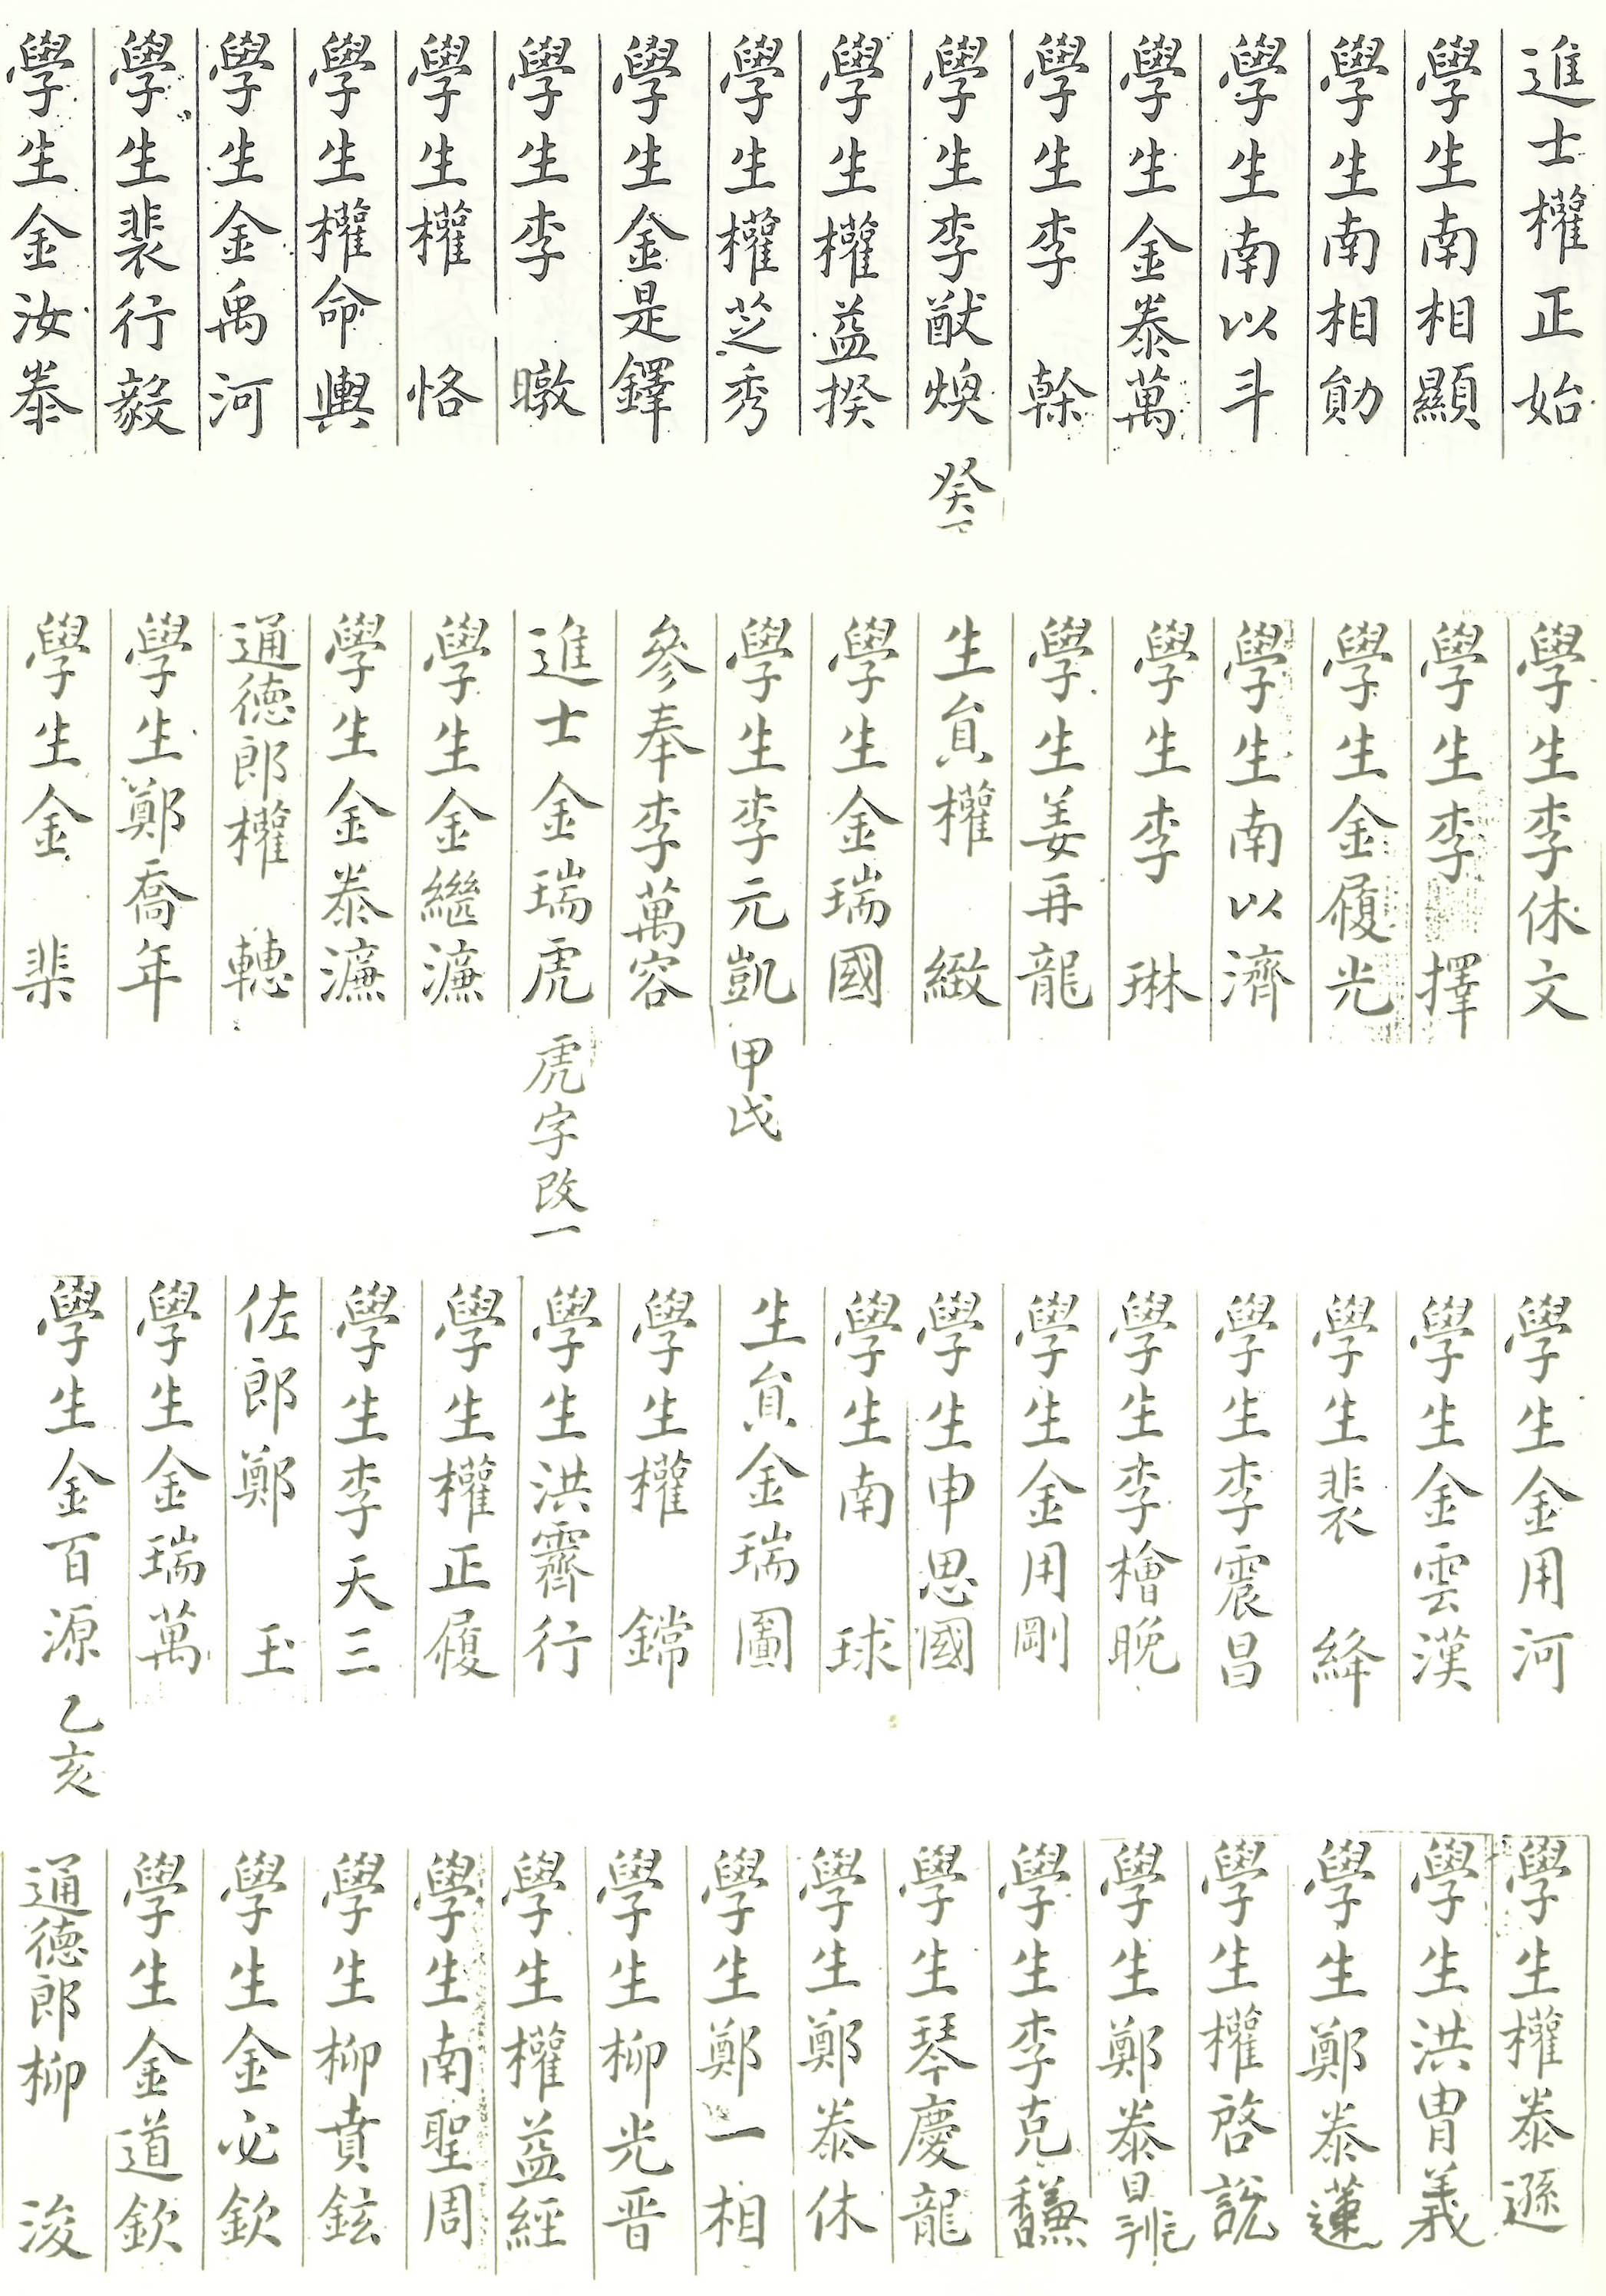 進士權正始
學生南相顯
學生南相勛
學生南以斗
學生金泰萬
學生李 榦
學生李猷煥 癸丁
學生權益揆
學生權芝秀
學生金是鐸
學生李 暾
學生權 恪
學生權命輿
學生金禹河
學生裴行毅
學生金汝泰
學生李休文
學生李 擇
學生金履光
學生南以濟
學生李 琳
學生姜再龍
生員權 緻
學生金瑞國
學生李元凱 甲戌
參奉李萬容
進士金瑞虎 虎字改一
學生金繼濂
學生金泰濂
通德郎權 轉
學生鄭喬年
學生金 棐
學生金用河
學生金雲漢
學生裴 絳
學生李震昌
學生李檜晚
學生金用剛
學生申思國
學生南 球
生員金瑞圖
學生權 鐺
學生洪霽行
學生權正履
學生李天三
佐郎鄭 玉
學生金瑞萬
學生金百源 乙亥
學生權泰遜
學生洪胄義
學生鄭泰蓮
學生權啓說
學生鄭泰
學生李克馦
學生琴慶龍
學生鄭泰休
學生鄭一相
學生柳光晋
學生權益經
學生南聖周
學生柳賁鉉
學生金必欽
學生金道欽
通德郎柳 浚